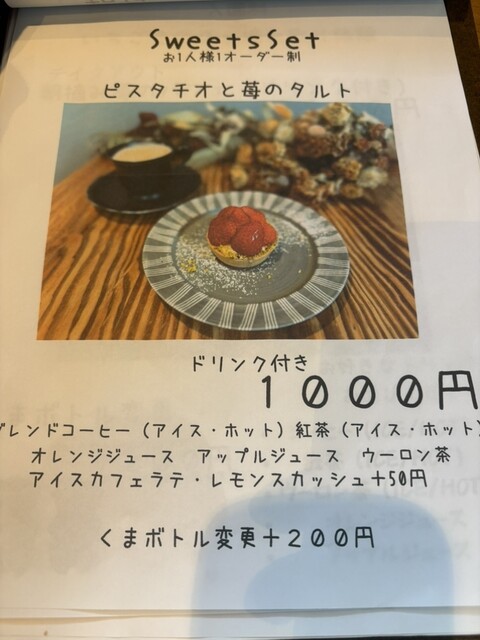 SweetsSet
お1人様1オーダー制
ピスタチオと苺のタルト
ドリンク付き
1000円
ブレンドコーヒー（アイス・ホット）紅茶（アイス・ホット）
オレンジジュース　アップルジュース　ウーロン茶
アイスカフェラテ・レモンスカッシュ＋50円
くまボトル変更＋200円